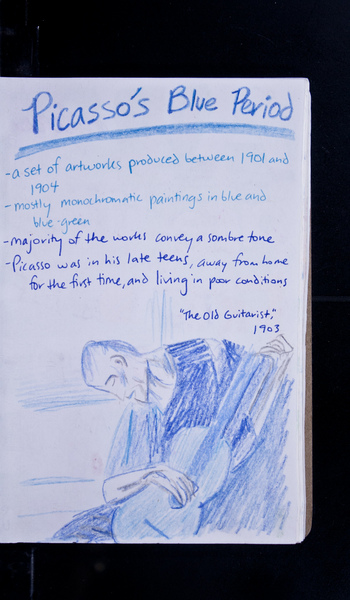 Picasso's Blue Period
-a set of artworks produced between 1901 and
1904
-mostly monochromatic paintings in blue and
blue-green
-majority of the works convey a sombre tone
-Picasso was in his late teens, away from home
for the first time, and living in poor conditions
"The Old Guitarist,"
1903